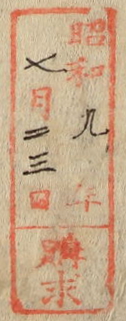 昭和九年
七月二三日
購求